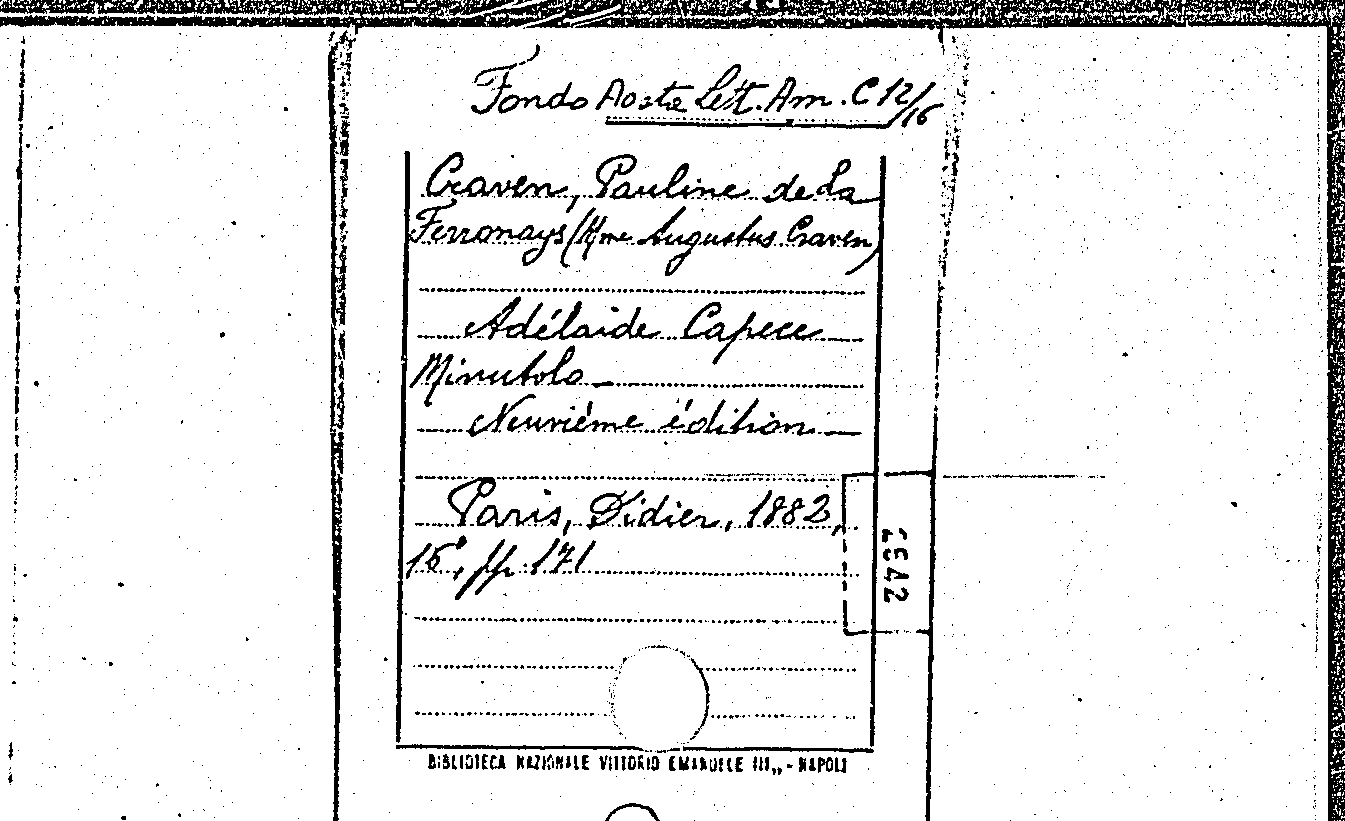 Fondo Aosta Lett. Am. C 12/16
Craven, Pauline de La
Ferronays (Mme Augustus Craven)
Adélaide Capece
Minutolo
Neuviéme édition
Paris, Didier, 1882,
16°, pp. 171
BIBLIOTECA NAZIONALE VITTORIO EMANUELE III„ - NAPOLI